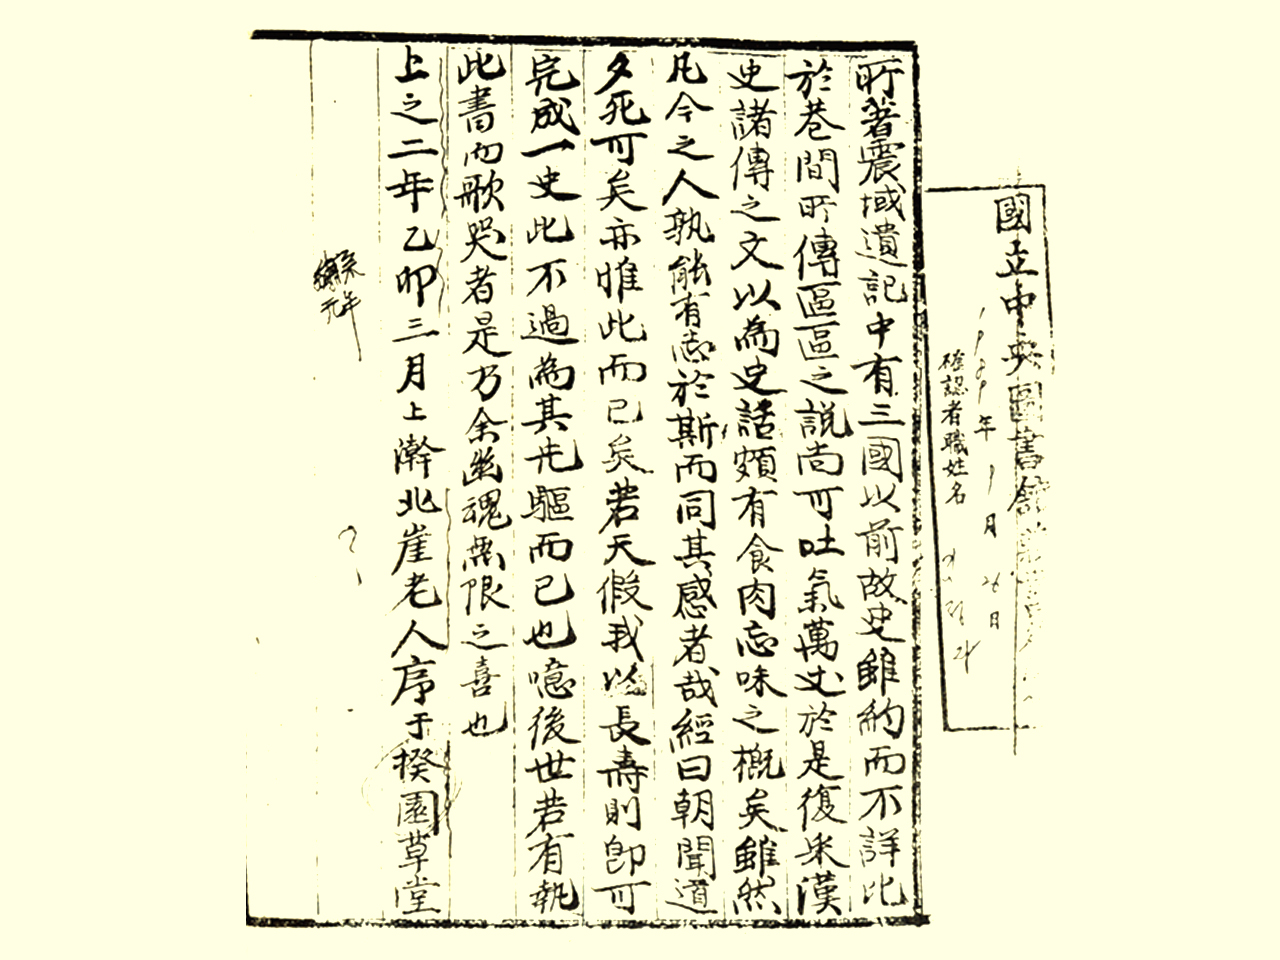 國立中央圖書館
1989年9月26日
確認者職姓名
所著震域遺記中有三國以前故史雖約而不詳比
於巷間所傳區區之說尚可吐氣萬丈於是復采漢
史諸傳之文以爲史話頗有食肉忘味之概矣雖然
凡今之人孰能有志於斯而同其感者哉經曰朝聞道
夕死可矣亦惟此而已矣若天假我以長壽則卽可
完成一史此不過爲其先驅而已也噫後世若有執
此書而歌哭者是乃余幽魂無限之喜也
上之二年乙卯三月上澣北崖老人序于揆園草堂
肅宗
元年